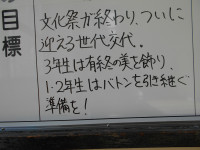 目標
文化祭が終わり、ついに
迎える世代交代。
3年生は有終の美を飾り、
1・2年生はバトンを引き継ぐ
準備を!